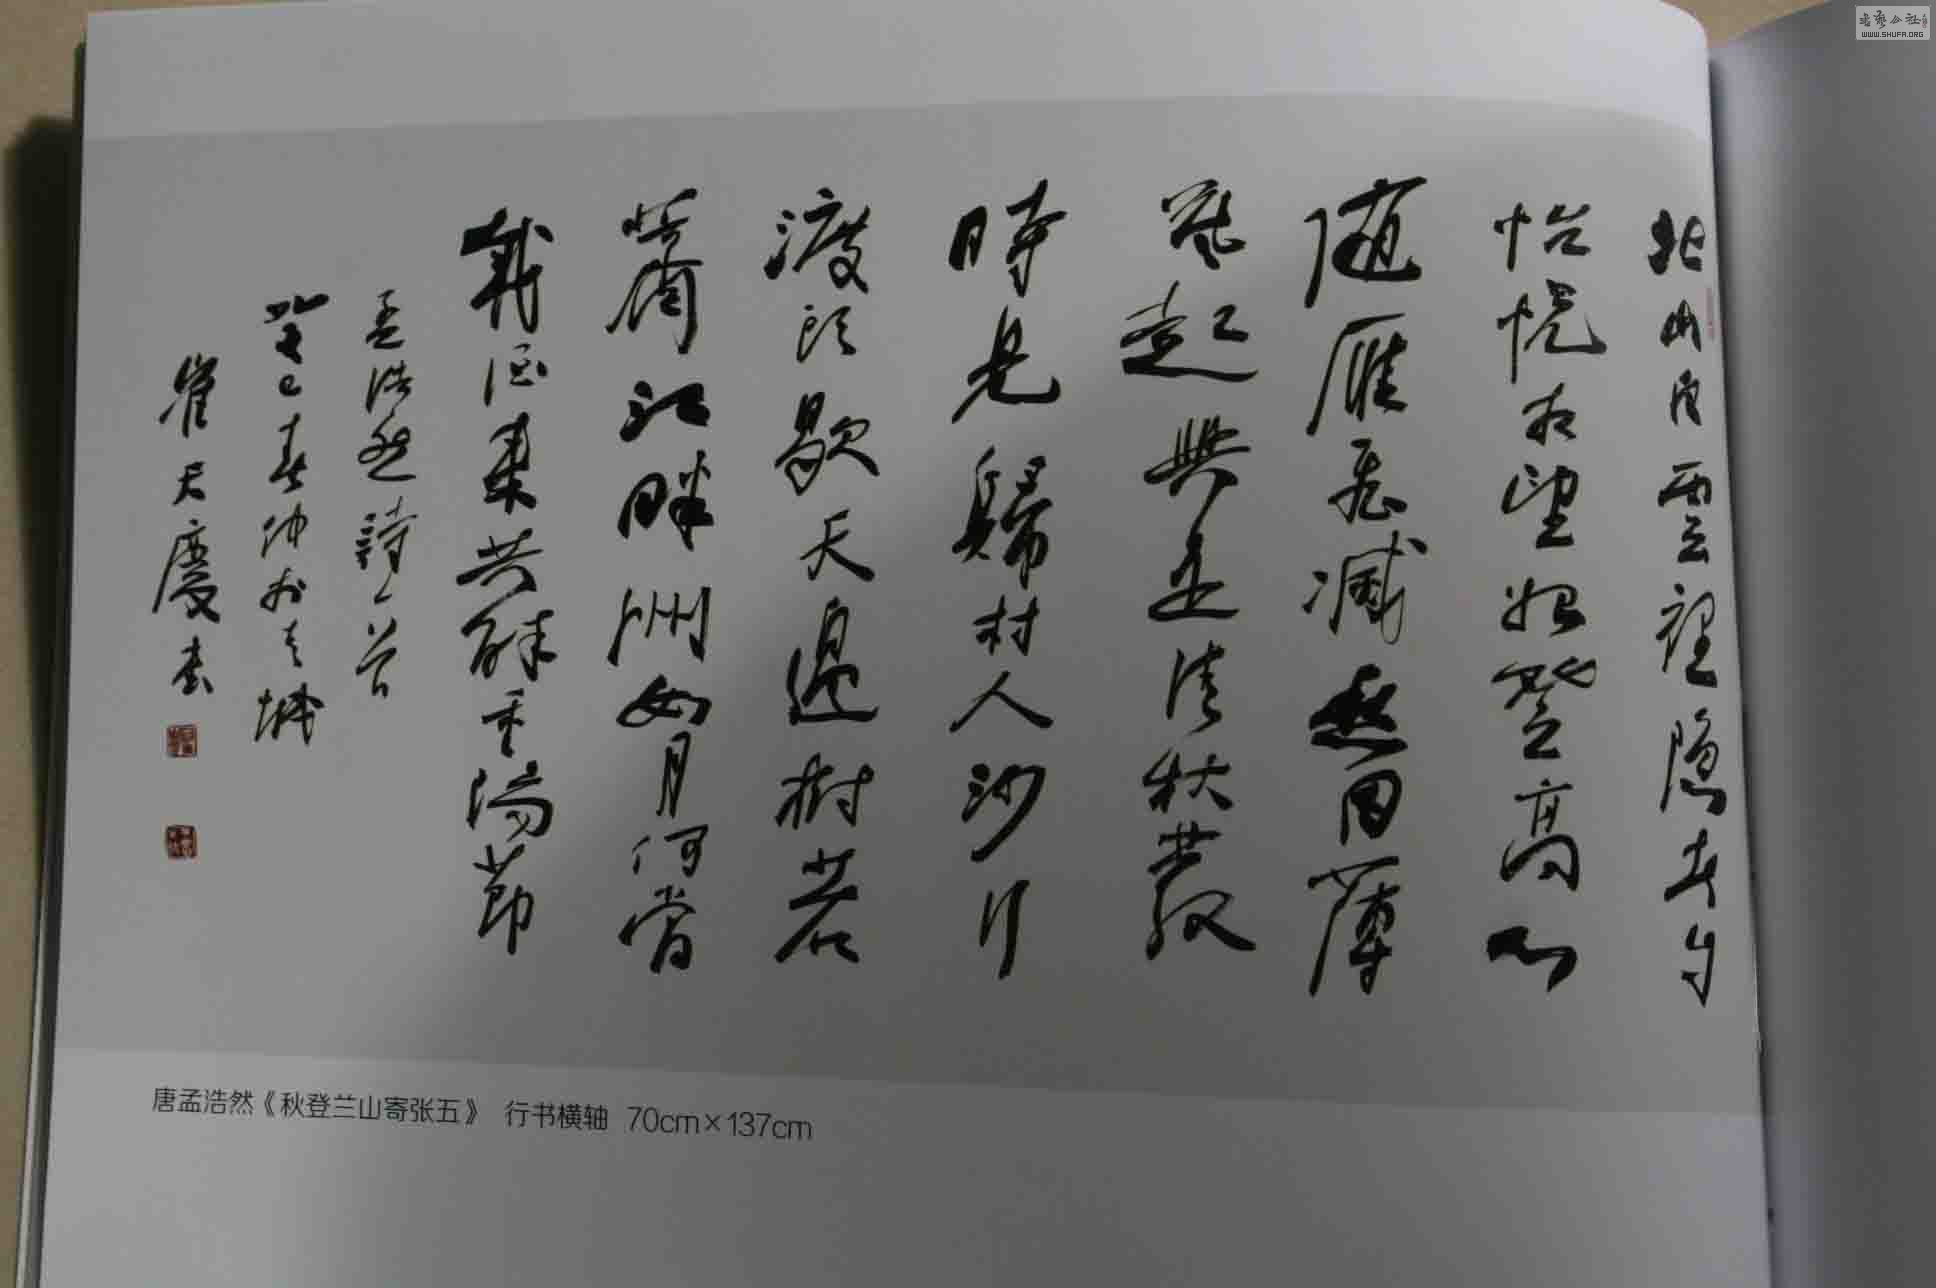 北山白雲裡隱者自
怡悦相望始登高心
随雁飛滅愁因薄
暮起興是清秋發
時見歸村人沙行
渡頭歇天邊樹若
薺江畔洲如月何當
載酒來共醉重陽節
孟浩然詩一首
癸巳春仲於城
崔天慶書
唐孟浩然《秋登兰山寄张五》 行书横轴 70cm×137cm
书艺公社
WWW.SHUFA.ORG